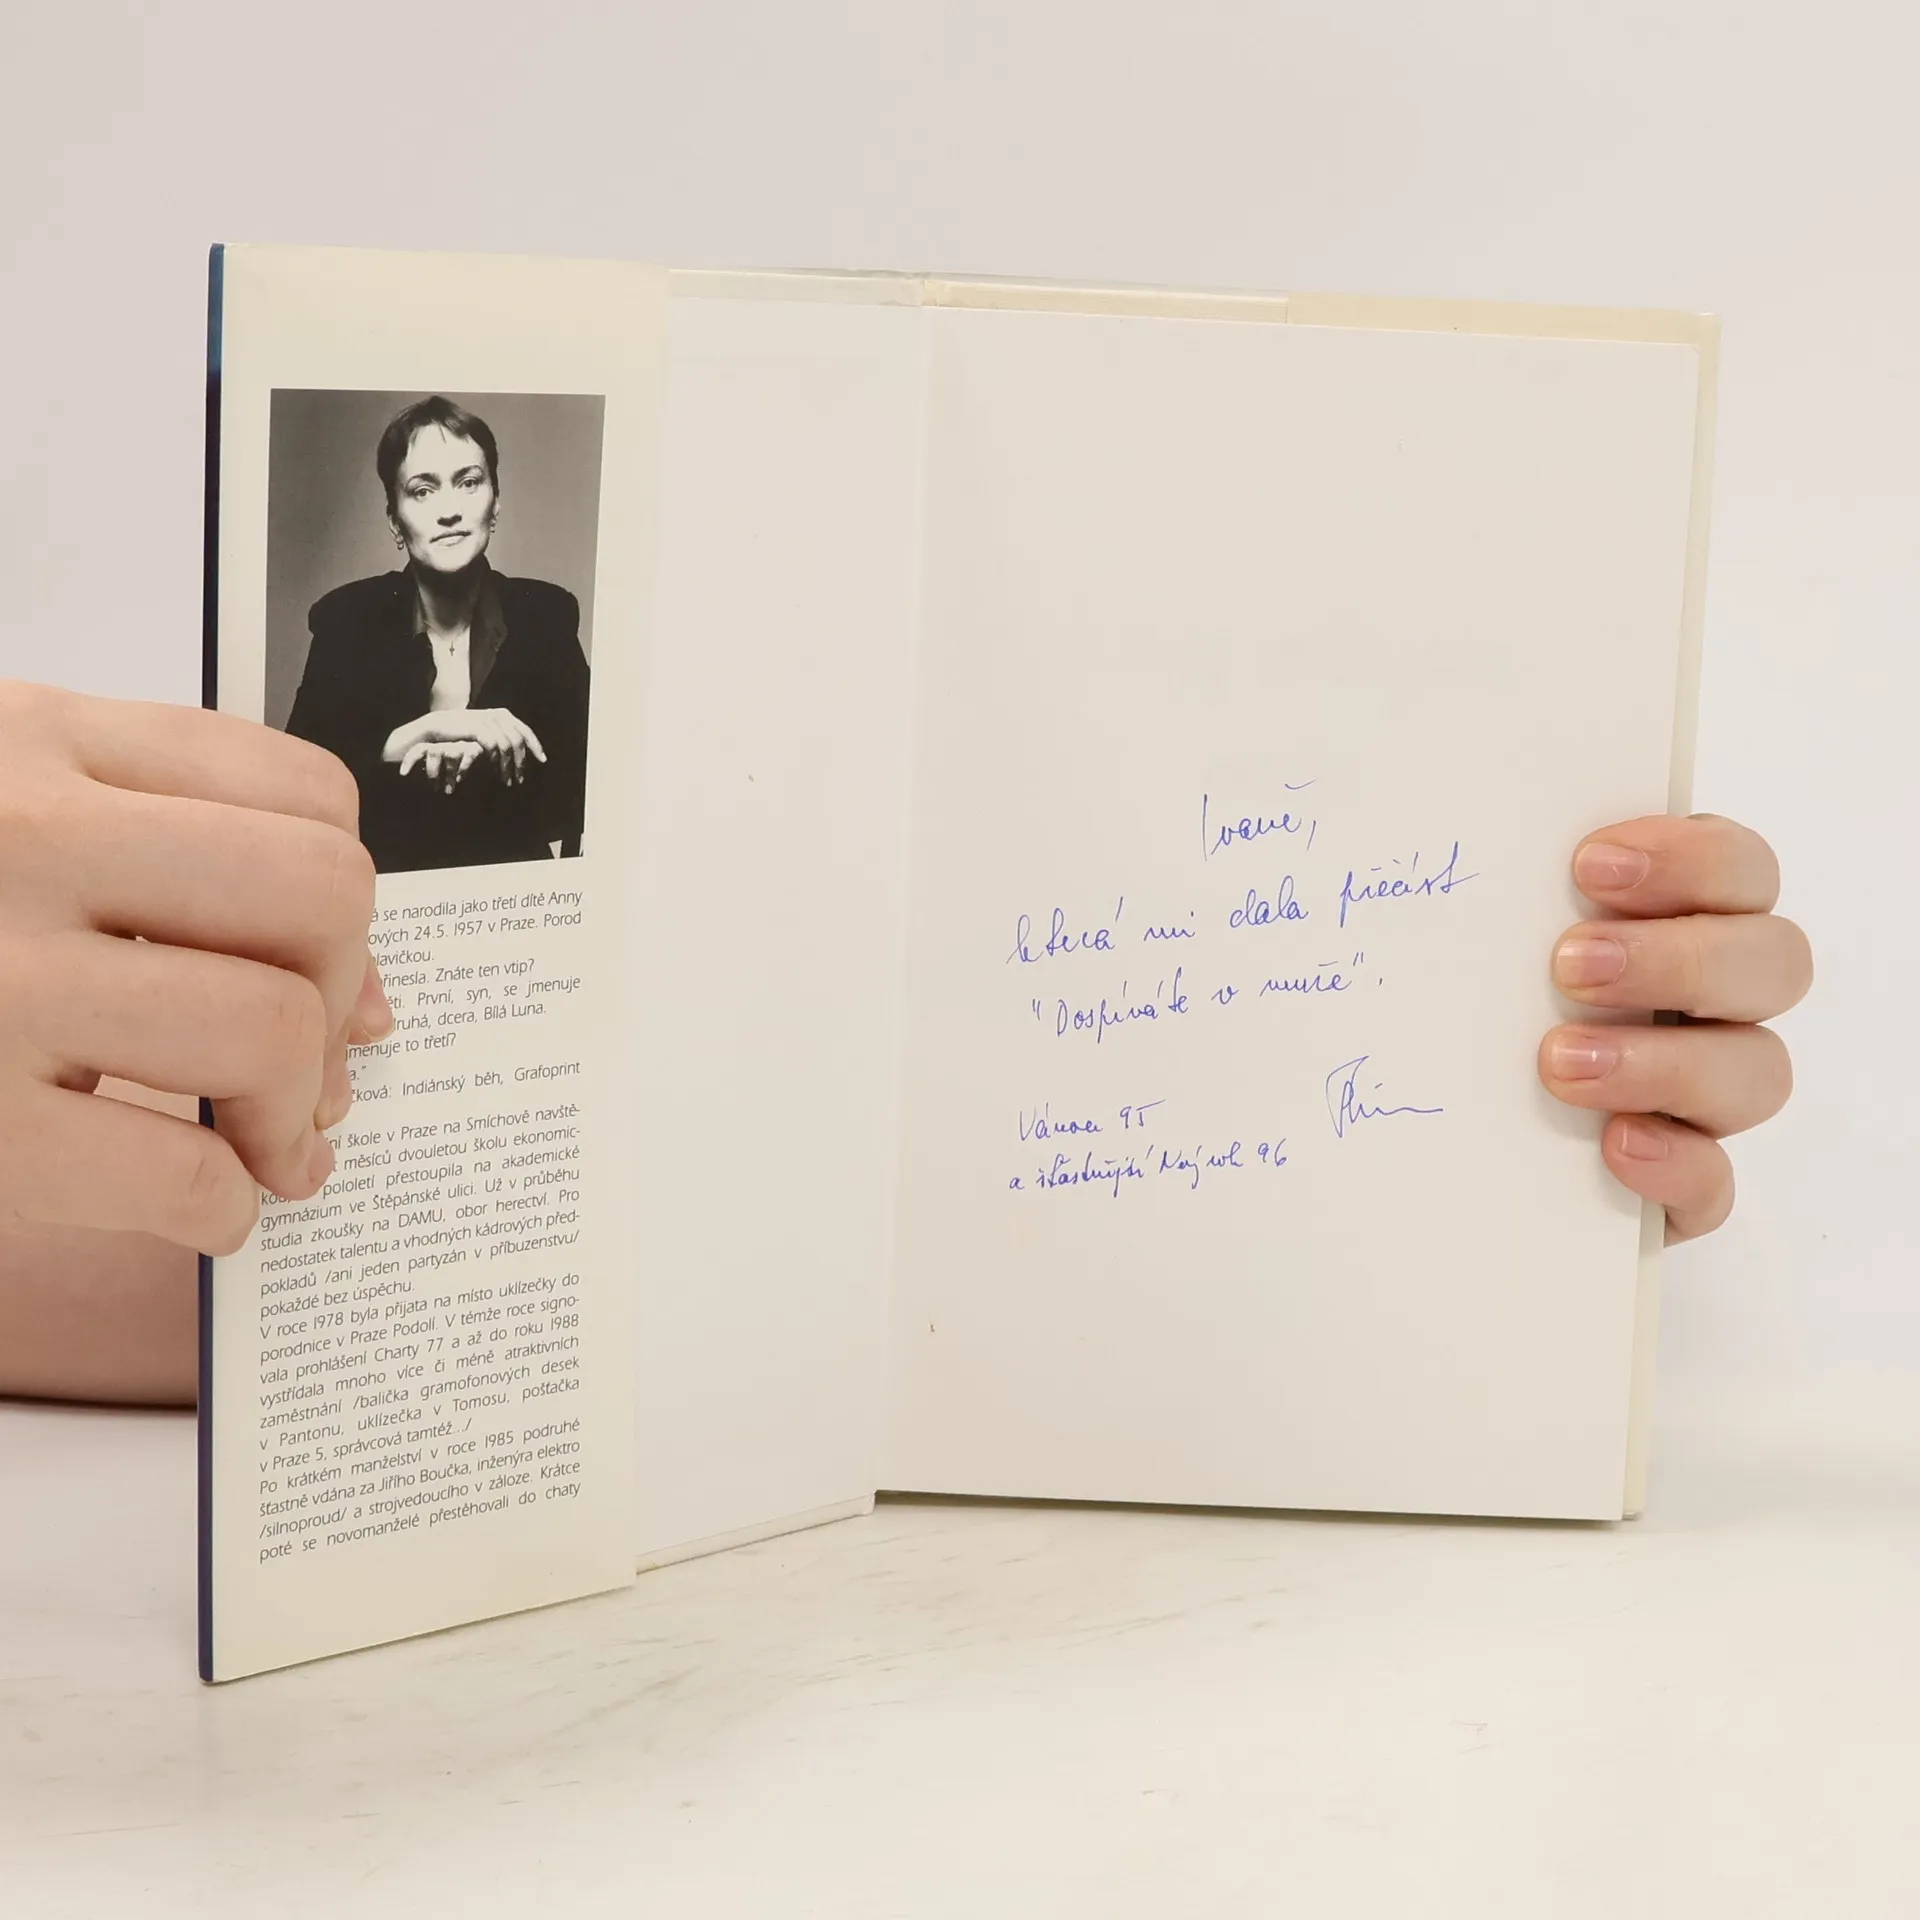 á se narodila jako třetí dítě Anny
ových 24.5. 1957 v Praze. Porod
lavičkou.
řinesla. Znáte ten vtip?
ěti. První, syn, se jmenuje
druhá, dcera, Bílá Luna.
jmenuje to třetí?
a."
čková: Indiánský běh, Grafoprint
ní škole v Praze na Smíchově navště-
t měsíců dvouletou školu ekonomic-
kou, pololetí přestoupila na akademické
gymnázium ve Štěpánské ulici. Už v průběhu
studia zkoušky na DAMU, obor herectví. Pro
nedostatek talentu a vhodných kádrových před-
pokladů /ani jeden partyzán v příbuzenstvu/
pokaždé bez úspěchu.
V roce 1978 byla přijata na místo uklízečky do
porodnice v Praze Podolí. V témže roce signo-
vala prohlášení Charty 77 a až do roku 1988
vystřídala mnoho více či méně atraktivních
zaměstnání /balička gramofonových desek
v Pantonu, uklízečka v Tomosu, pošťačka
v Praze 5, správcová tamtéž.../
Po krátkém manželství v roce 1985 podruhé
šťastně vdána za Jiřího Boučka, inženýra elektro
/silnoproud/ a strojvedoucího v záloze. Krátce
poté se novomanželé přestěhovali do chaty
Ivaně,
která mi dala přečíst
"Dospíváte v muže".
Vánoce 95
a šťastnější Nový rok 96